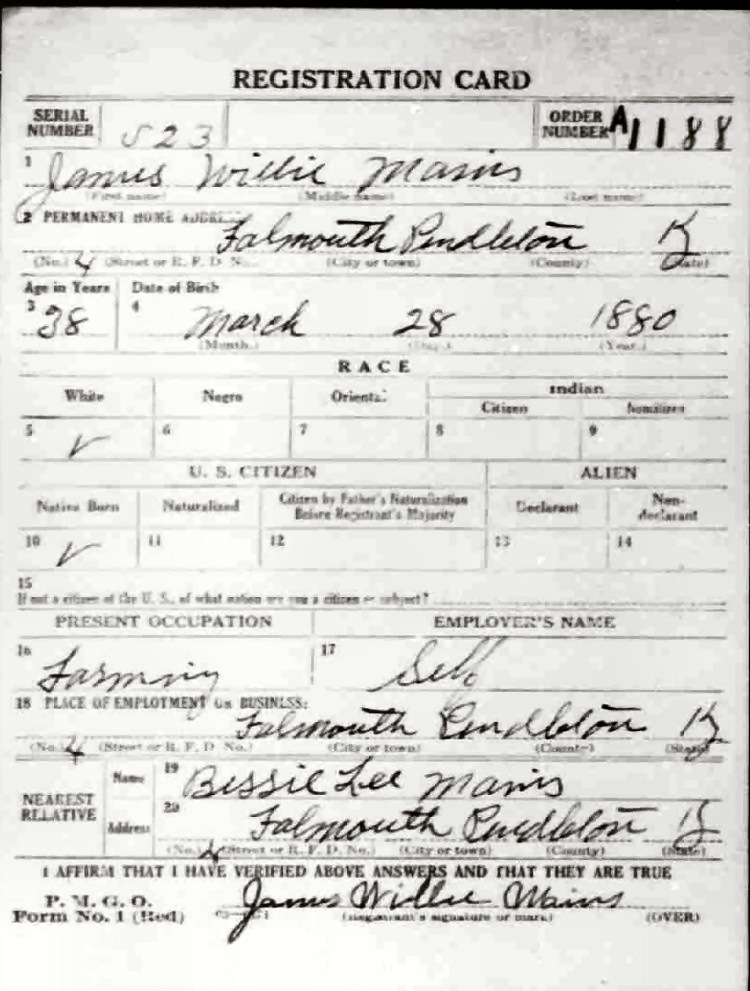 REGISTRATION CARD
SERIAL NUMBER 523 ORDER NUMBER A1188
1 James Willie Mains
(First name) (Middle name) (Last name)
2 PERMANENT HOME ADDRESS: Falmouth Pendleton Ky
(No.) 4 (Street or R. F. D. No.) (City or town) (County) (State)
Age in Years Date of Birth
3 38 4 March 28 1880
(Month.) (Day.) (Year.)
RACE
White Negro Oriental Indian
Citizen Noncitizen
5 ✓ 6 7 8 9
U. S. CITIZEN ALIEN
Native Born Naturalized Citizen by Father's Naturalization Before Registrant's Majority Declarant Non-declarant
10 ✓ 11 12 13 14
15
If not a citizen of the U. S., of what nation are you a citizen or subject?
PRESENT OCCUPATION EMPLOYER'S NAME
16 Farming 17 Self
18 PLACE OF EMPLOYMENT OR BUSINESS:
Falmouth Pendleton Ky
(No.) 4 (Street or R. F. D. No.) (City or town) (County) (State)
NEAREST RELATIVE Name 19 Bessie Lee Mains
Address 20 Falmouth Pendleton Ky
(No.) 4 (Street or R. F. D. No.) (City or town) (County) (State)
I AFFIRM THAT I HAVE VERIFIED ABOVE ANSWERS AND THAT THEY ARE TRUE
P. M. G. O.
Form No. 1 (Red) James Willie Mains
(Registrant's signature or mark) (OVER)